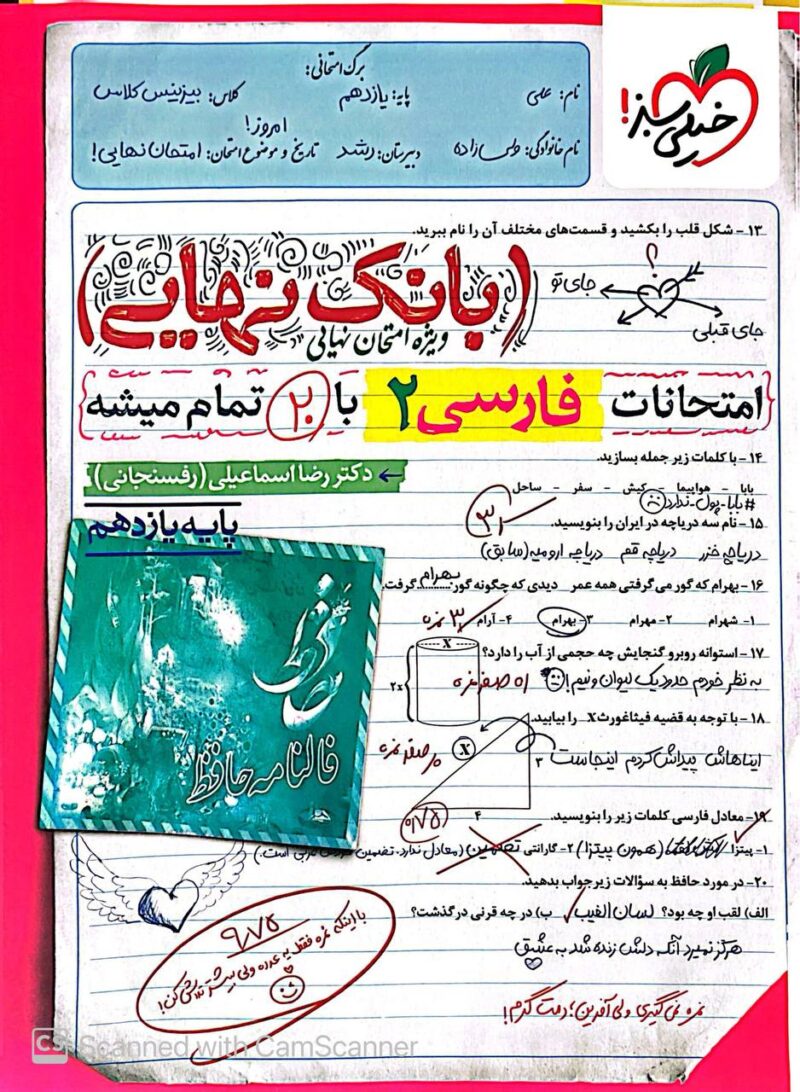 خیلی سبز!
برگ امتحانی:
نام: علی
پایه: یازدهم
کلاس: بیزینس کلاس
نام خانوادگی: ولی زاده
دبیرستان: رشد
تاریخ و موضوع امتحان: امروز! امتحان نهایی!
۱۳ - شکل قلب را بکشید و قسمت‌های مختلف آن را نام ببرید.
؟
جای تو
جای قبلی
(بانک نهایی)
ویژه امتحان نهایی
{امتحانات فارسی ۲ با ۲۰ تمام میشه}
۱۴ - با کلمات زیر جمله بسازید.
بابا - هواپیما - کیش - سفر - ساحل
#بابا-پول-ندارد
← دکتر رضا اسماعیلی (رفسنجانی)
پایه یازدهم
۱۵ - نام سه دریاچه در ایران را بنویسید.
دریاچه خزر دریاچه قم دریاچه ارومیه (سابق)
۱۶ - بهرام که گور می‌گرفتی همه عمر دیدی که چگونه گور بهرام گرفت.
۱- شهرام ۲- مهرام ۳- بهرام ۴- آرام
۳ نمره
۱۷ - استوانه روبرو گنجایش چه حجمی از آب را دارد؟
به نظر خودم حدود یک لیوان و نیم!
X
2x
۱۸ - با توجه به قضیه فیثاغورث X را بیابید.
ایناهاش پیداش کردم اینجاست
X
۳
۴
۱۹ - معادل فارسی کلمات زیر را بنویسید.
۰/۷۵
۱- پیتزا (همون پیتزا) ۲- گارانتی تضمین (معادل ندارد.
۲۰- در مورد حافظ به سؤالات زیر جواب بدهید.
الف) لقب او چه بود؟ لسان الغیب ب) در چه قرنی درگذشت؟
هرگز نمیرد آنکه دلش زنده شد به عشق
نمره نمی‌گیری ولی آفرین؛ دمت گرم!
۹/۷۵
با اینکه نمره فقط یه عدده ولی بیشتر تلاش کن!
فالنامه حافظ
CS Scanned with CamScanner